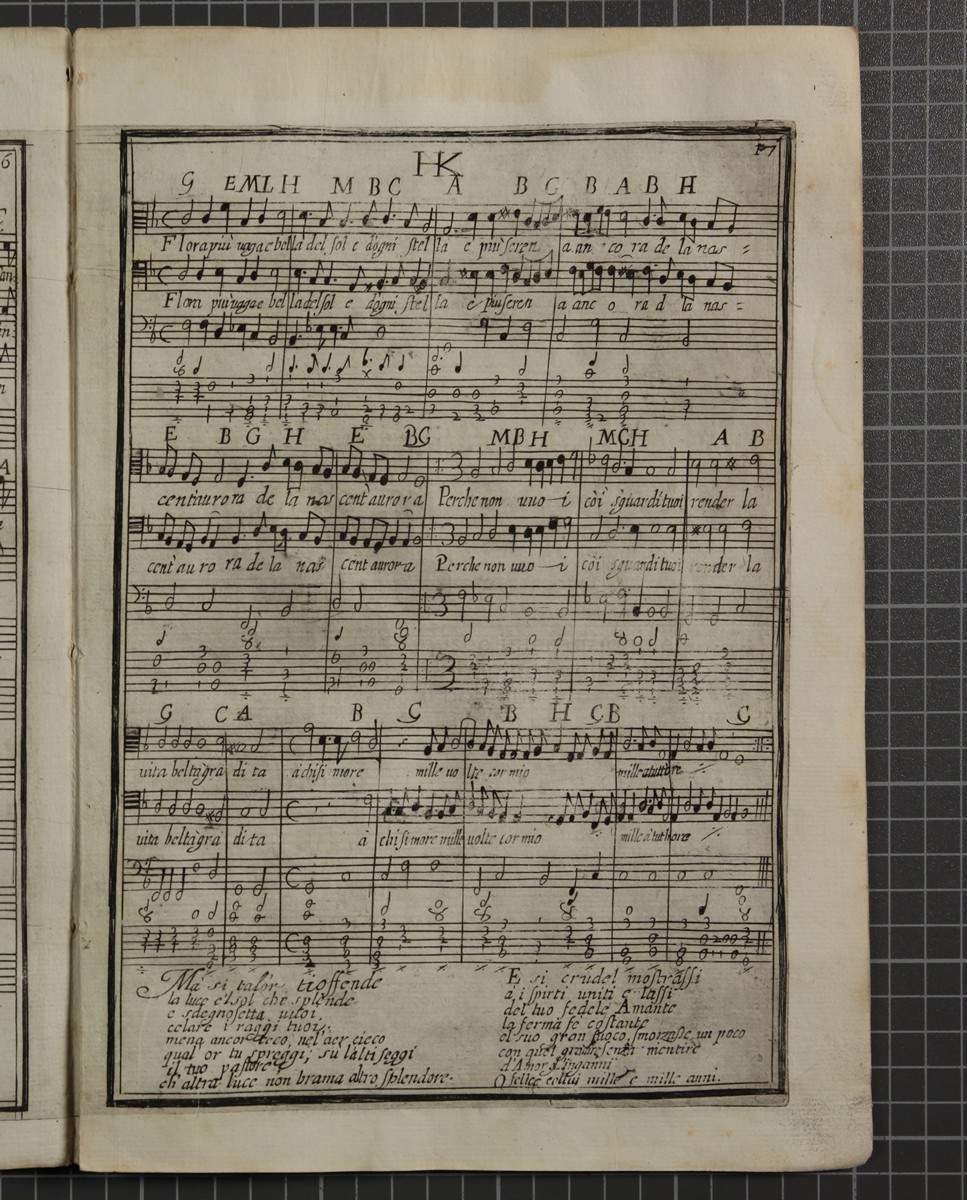 17
HK
G EMLH M BC A B C B A B H
Flora più vagae bella del sol e dogni stella e più seren a an co ra de la nas =
Flora piu vagae bel la del sol e dogni stel la e piu seren a anc o ra d la nas =
E B G H E BG MBH MGH A B
cent'aurora de la nas cent'aurora Perche non vuo i còi sguardi tuoi render la
cent'au ro ra de la nas cent aurora Perche non vuo i còi sguardi tuoi render la
3
G C A B G B H CB G
vita beltagra di ta à chi si more mille vo lte cor mio mille atutthore
vita beltagra di ta à chi si more mille volte cor mio mille à tutthore
Ma si talor ti offende
la luce el sol che splende
e sdegnosetta vuoi
celare i raggi tuoi,
meno ancor nel aer cieco
qual or tu spreggi; su l'alti seggi
il tuo pastore
ch altra luce non brama altro splendore.
E si crudel mostrassi
a i spirti uniti e lassi
del tuo fedele Amante
la ferma fe costante
el suo gran fuoco, un poco
con quel mentire
d'Amor
O felice colui mille e mille anni.